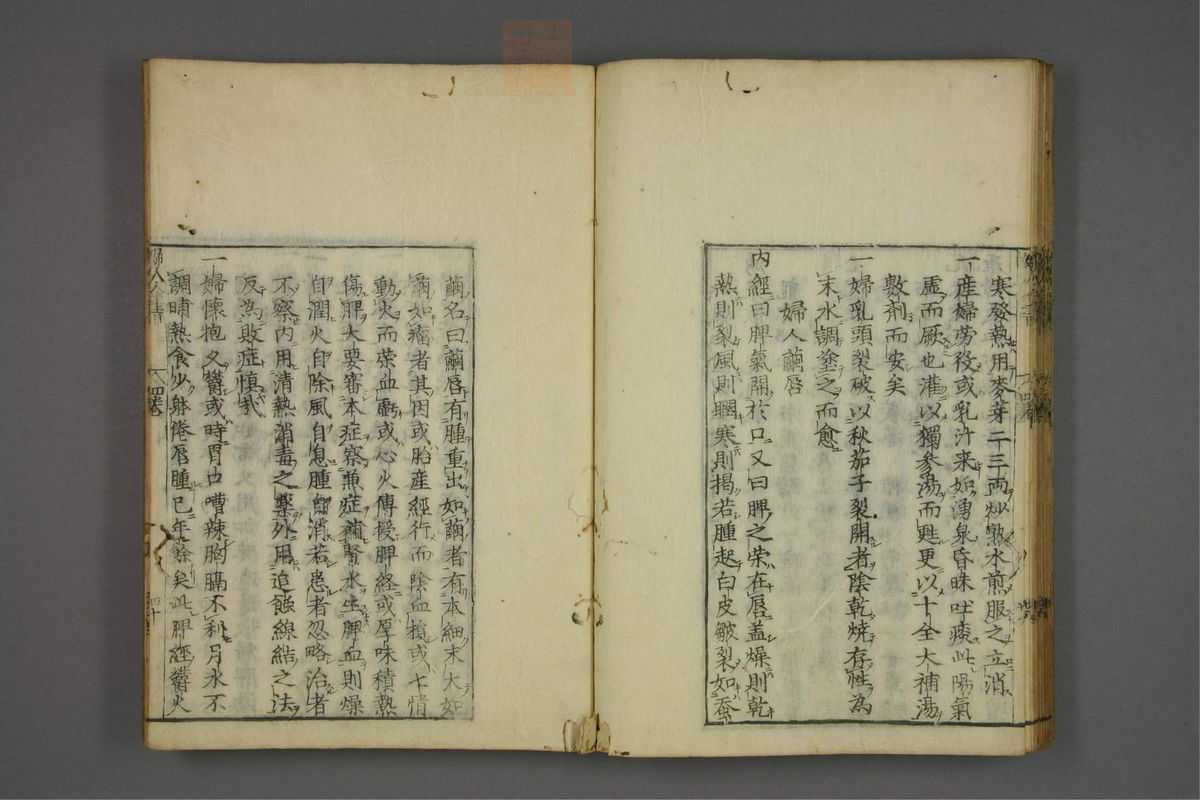 寒發熱用麥芽二三両炒熟水煎服之立消
一産婦労役或乳汁来如湧泉昏昧吐痰此陽氣
虚而厥也灌以獨参湯而甦更以十全大補湯
数剤而安矣
一婦乳頭裂破以秋茄子裂開者陰乾焼存性為
末水調塗之而愈
婦人繭唇
内經曰脾氣開於口又曰脾之栄在唇盖燥則乾
熱則裂風則瞤寒則掲若腫起白皮皺裂如蚕
繭名曰繭唇有腫重出如繭者有本細末大如
繭如瘤者其因或胎産經行而陰血損或七情
動火而栄血虧或心火傳授脾経或厚味積熱
傷脾大要審本症察兼症補腎水生脾血則燥
自潤火自除風自息腫自消若患者忽略治者
不察内用清熱消毒之藥外用追蝕線結之法
反為敗症慎哉
一婦懐抱久鬱或時胃口嘈辣胸膈不利月水不
調晡熱食少躰倦唇腫已年餘矣此脾經鬱火
四巻
四十